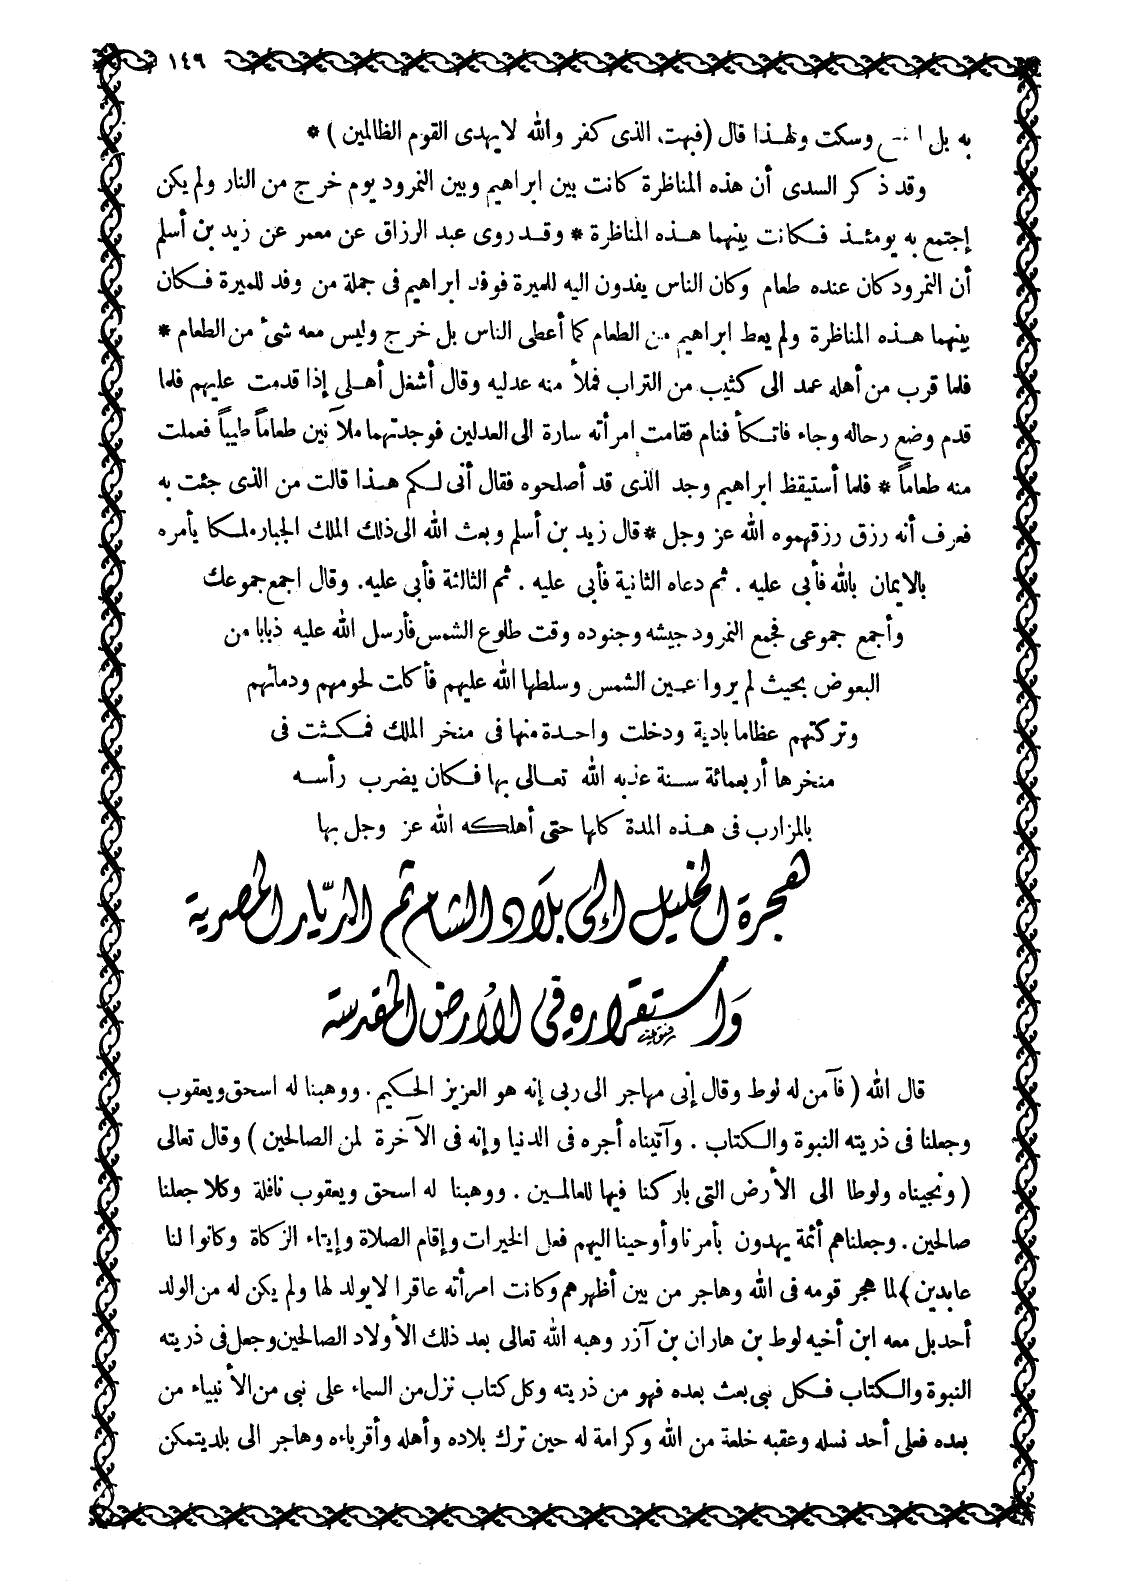 ١٤٩
به بل وسكت ولهذا قال (فبهت الذى كفر والله لا يهدى القوم الظالمين) *
وقد ذكر السدى أن هذه المناظرة كانت بين ابراهيم وبين النمرود يوم خرج من النار ولم يكن
إجتمع به يومئذ فكانت بينهما هذه المناظرة * وقد روى عبد الرزاق عن معمر عن زيد بن أسلم
أن النمرود كان عنده طعام وكان الناس يفدون اليه للميرة فوفد ابراهيم فى جملة من وفد للميرة فكان
بينهما هذه المناظرة ولم يعط ابراهيم من الطعام كما أعطى الناس بل خرج وليس معه شئ من الطعام *
فلما قرب من أهله عمد الى كثيب من التراب فملأ منه عدليه وقال أشغل أهلى إذا قدمت عليهم فلما
قدم وضع رحاله وجاء فاتكأ فنام فقامت امرأته سارة الى العدلين فوجدتهما ملآنين طعاماً طيباً فعملت
منه طعاماً * فلما أستيقظ ابراهيم وجد الذى قد أصلحوه فقال أنى لكم هذا قالت من الذى جئت به
فعرف أنه رزق رزقهموه الله عز وجل * قال زيد بن أسلم وبعث الله الى ذلك الملك الجبار ملكا يأمره
بالايمان بالله فأبى عليه . ثم دعاه الثانية فأبى عليه . ثم الثالثة فأبى عليه . وقال اجمع جموعك
وأجمع جموعى فجمع النمرود جيشه وجنوده وقت طلوع الشمس فأرسل الله عليه ذبابا من
البعوض بحيث لم يروا عين الشمس وسلطها الله عليهم فأكلت لحومهم ودمائهم
وتركتهم عظاما بادية ودخلت واحدة منها فى منخر الملك فمكثت فى
منخرها أربعمائة سنة عذبه الله تعالى بها فكان يضرب رأسه
بالمزارب فى هذه المدة كلها حتى أهلكه الله عز وجل بها
هجرة الخليل إلى بلاد الشام ثم الديّار المصرية
واستقراره فى الأرض المقدسة
قال الله ( فآمن له لوط وقال إنى مهاجر الى ربى إنه هو العزيز الحكيم . ووهبنا له اسحق ويعقوب
وجعلنا فى ذريته النبوة والكتاب . وآتيناه أجره فى الدنيا وإنه فى الآخرة لمن الصالحين ) وقال تعالى
( ونجيناه ولوطا الى الأرض التى باركنا فيها للعالمين . ووهبنا له اسحق ويعقوب نافلة وكلا جعلنا
صالحين . وجعلناهم أئمة يهدون بأمرنا وأوحينا اليهم فعل الخيرات وإقام الصلاة وإيتاء الزكاة وكانوا لنا
عابدين ) لما هجر قومه فى الله وهاجر من بين أظهرهم وكانت امرأته عاقرا لا يولد لها ولم يكن له من الولد
أحد بل معه ابن أخيه لوط بن هاران بن آزر وهبه الله تعالى بعد ذلك الأولاد الصالحين وجعل فى ذريته
النبوة والكتاب فكل نبى بعث بعده فهو من ذريته وكل كتاب نزل من السماء على نبى من الأنبياء من
بعده فعلى أحد نسله وعقبه خلعة من الله وكرامة له حين ترك بلاده وأهله وأقرباءه وهاجر الى بلد يتمكن